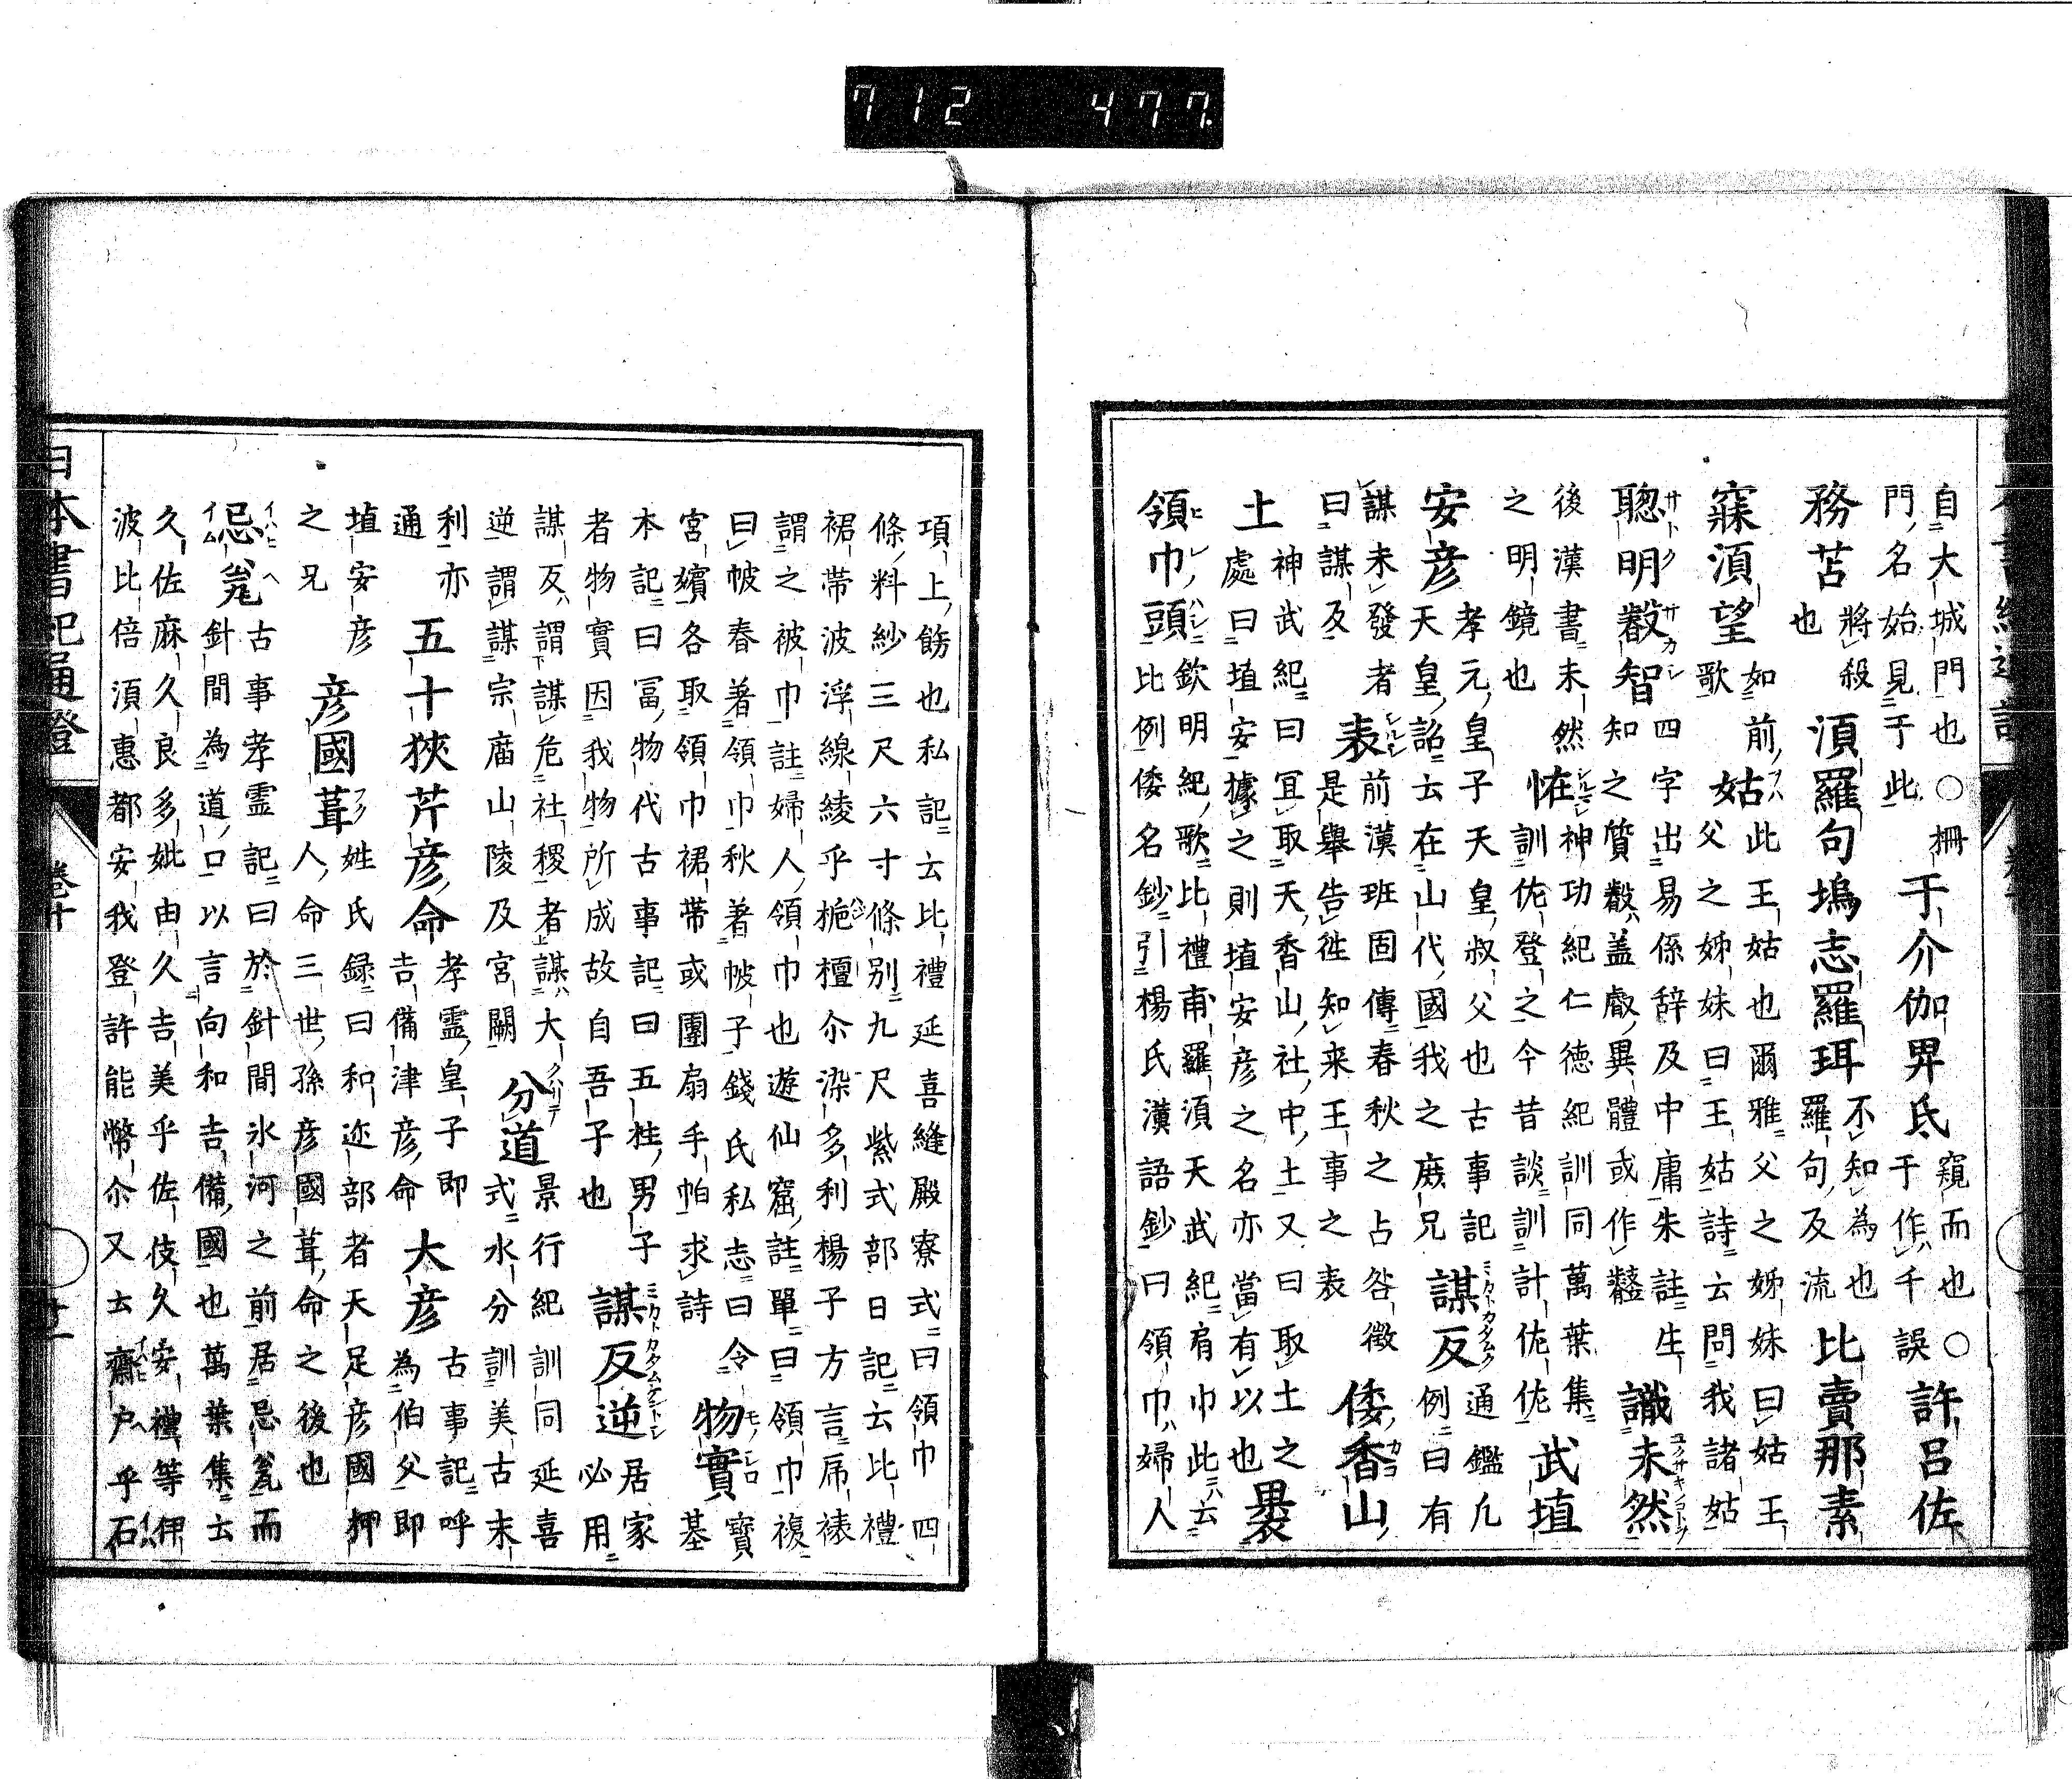 自大城門也○柵
門名始見于此
于介伽卑氐
窺而也○
于作千誤
許呂佐
務苫
將殺
也
湏羅句塢志羅珥
不知為也
羅句及流
比賣那素
寐湏望
如前
歌
姑
此王姑也爾雅父之姊妹曰姑王
父之姊妹曰王姑詩云問我諸姑
聰明叡智
四字出易係辞及中庸朱註生
知之質叡盖叡異體或作
識未然
後漢書未然
之明鏡也
恠
神功紀仁徳紀訓同萬葉集
訓佗登之今昔談訓計佗佗
武埴
安彦
孝元皇子天皇叔父也古事記
天皇詔云在山代國我之庶兄
謀反
通鑑凡
例曰有
謀未發者
曰謀反
表
前漢班固傳春秋之占咎徴
是舉告徃知来王事之表
倭香山
土
神武紀曰宜取天香山社中土又曰取土之
處曰埴安據之則埴安彦之名亦當有以也
裹
領巾頭
欽明紀歌比禮甫羅湏天武紀肩巾此云
比例倭名鈔引楊氏漢語鈔曰領巾婦人
項上餝也私記云比禮延喜縫殿寮式曰領巾四
條料紗三尺六寸條別九尺紫式部日記云比禮
裙帯波浮線綾乎檀尓染多利楊子方言帍裱
謂之被巾註婦人領巾也遊仙窟註單曰領巾複
曰帔春著領巾秋著帔子錢氏私志曰令
宮嬪各取領巾裙帯或團扇手帕求詩
物實
寳
基
本記曰冨物代古事記曰五柱男子
者物實因我物所成故自吾子也
謀反逆
居家
必用
謀反謂謀危社稷者謀大
逆謂謀宗庿山陵及宮闕
分道
景行紀訓同延喜
式水分訓美古末
利亦
通
五十狹芹彦命
孝霊皇子即
吉備津彦命
大彦
古事記呼
為伯父即
埴安彦
之兄
彦國葺
姓氏録曰和迩部者天足彦國押
人命三世孫彦國葺命之後也
忌瓮
古事孝霊記曰於針間氷河之前居忌瓮而
針間為道口以言向和吉備國也萬葉集云
久佐麻久良多妣由久吉美乎佐伎久安禮等伊
波比倍湏惠都安我登許能幣尓又云齋户乎石
日本書紀通證
卷十